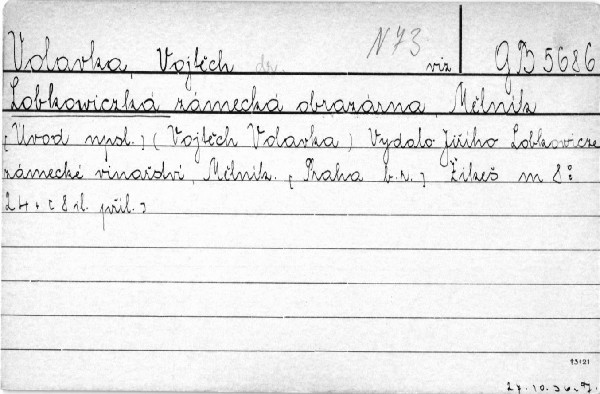 Volavka, Vojtěch dr. N73 viz GD 5686
Lobkowiczká zámecká obrazárna, Mělník
[Úvod npsl.] (Vojtěch Volavka) Vydalo Jiřího Lobkowicze
zámecké vinařství, Mělník. [Praha b.r.] Žikeš m 8:
24 + [8 il. příl.]
93121